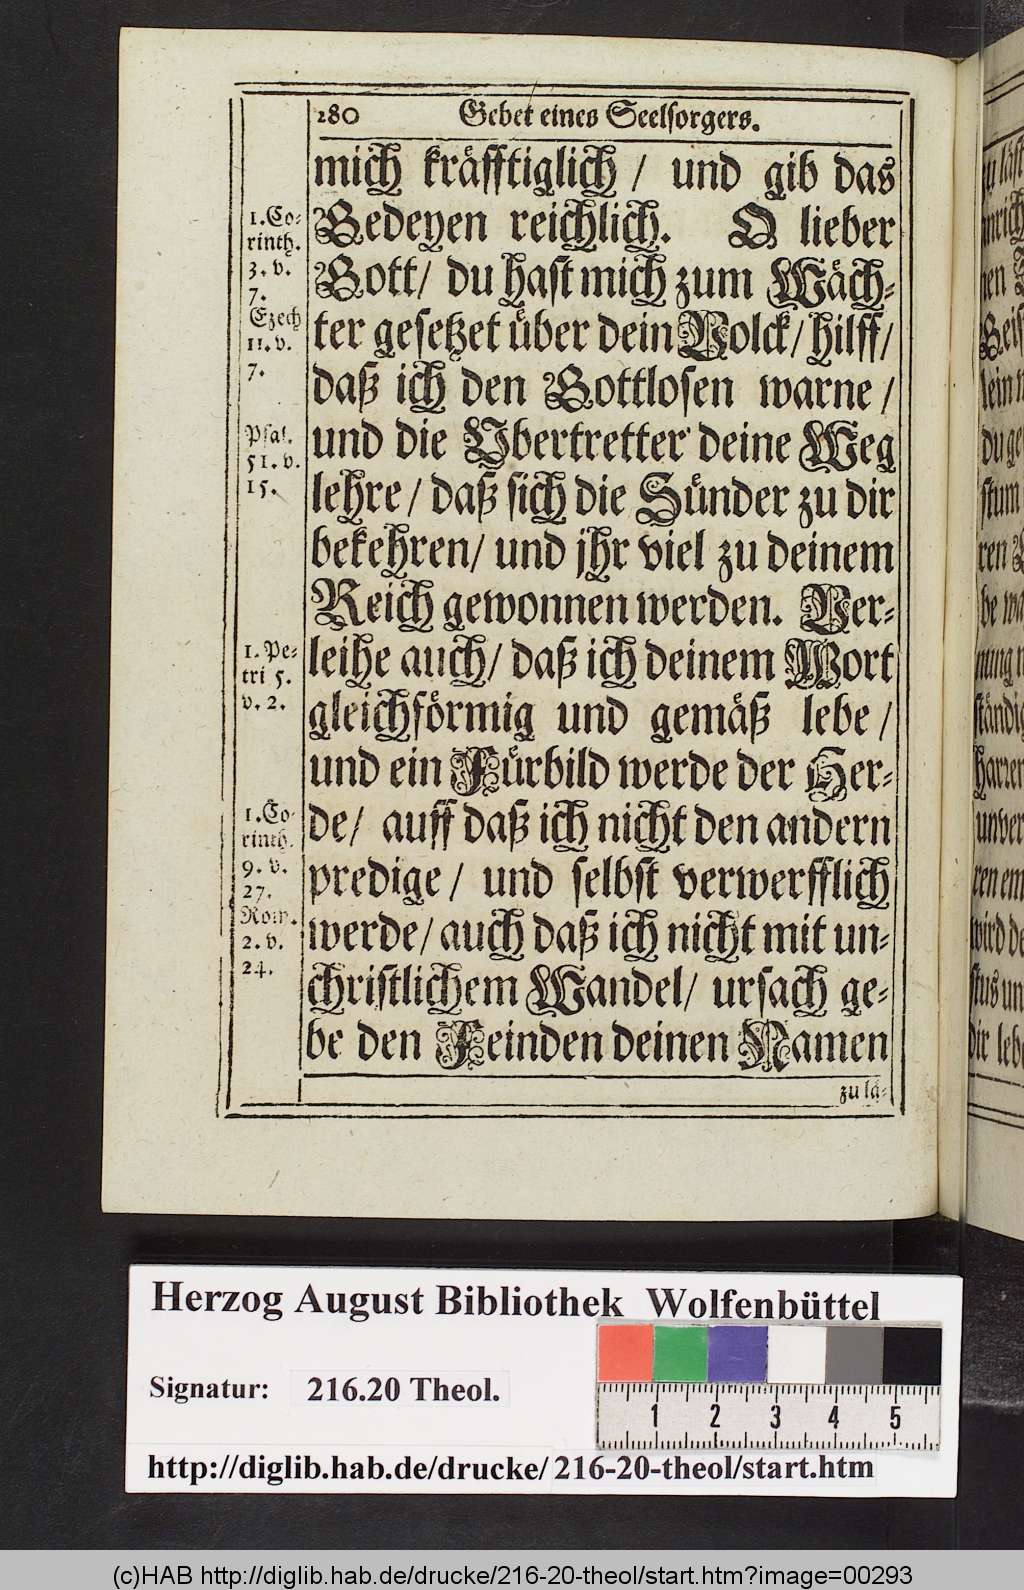 280 Gebet eines Seelsorgers.
mich kräfftiglich / und gib das
Gedeyen reichlich. O lieber
Gott / du hast mich zum Wäch-
ter gesetzet über dein Volck / hilff /
daß ich den Gottlosen warne /
und die Ubertretter deine Weg
lehre / daß sich die Sünder zu dir
bekehren / und jhr viel zu deinem
Reich gewonnen werden. Ver-
leihe auch / daß ich deinem Wort
gleichförmig und gemäß lebe /
und ein Fürbild werde der Her-
de / auff daß ich nicht den andern
predige / und selbst verwerfflich
werde / auch daß ich nicht mit un-
christlichem Wandel / ursach ge-
be den Feinden deinen Namen
zu lä-
1. Co-
rinth.
3. v.
7.
Ezech
11. v.
7.
Psal.
51. v.
15.
1. Pe-
tri 5.
v. 2.
1. Co-
rinth.
9. v.
27.
Rom.
2. v.
24.
Herzog August Bibliothek Wolfenbüttel
Signatur: 216.20 Theol.
1 2 3 4 5
http://diglib.hab.de/drucke/216-20-theol/start.htm
(c)HAB http://diglib.hab.de/drucke/216-20-theol/start.htm?image=00293